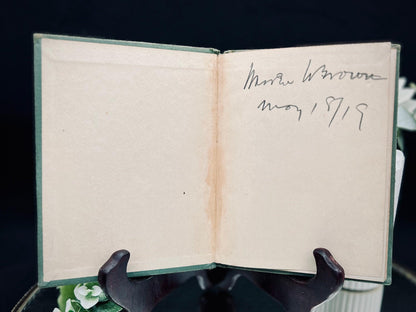 W Brown
May 18/19